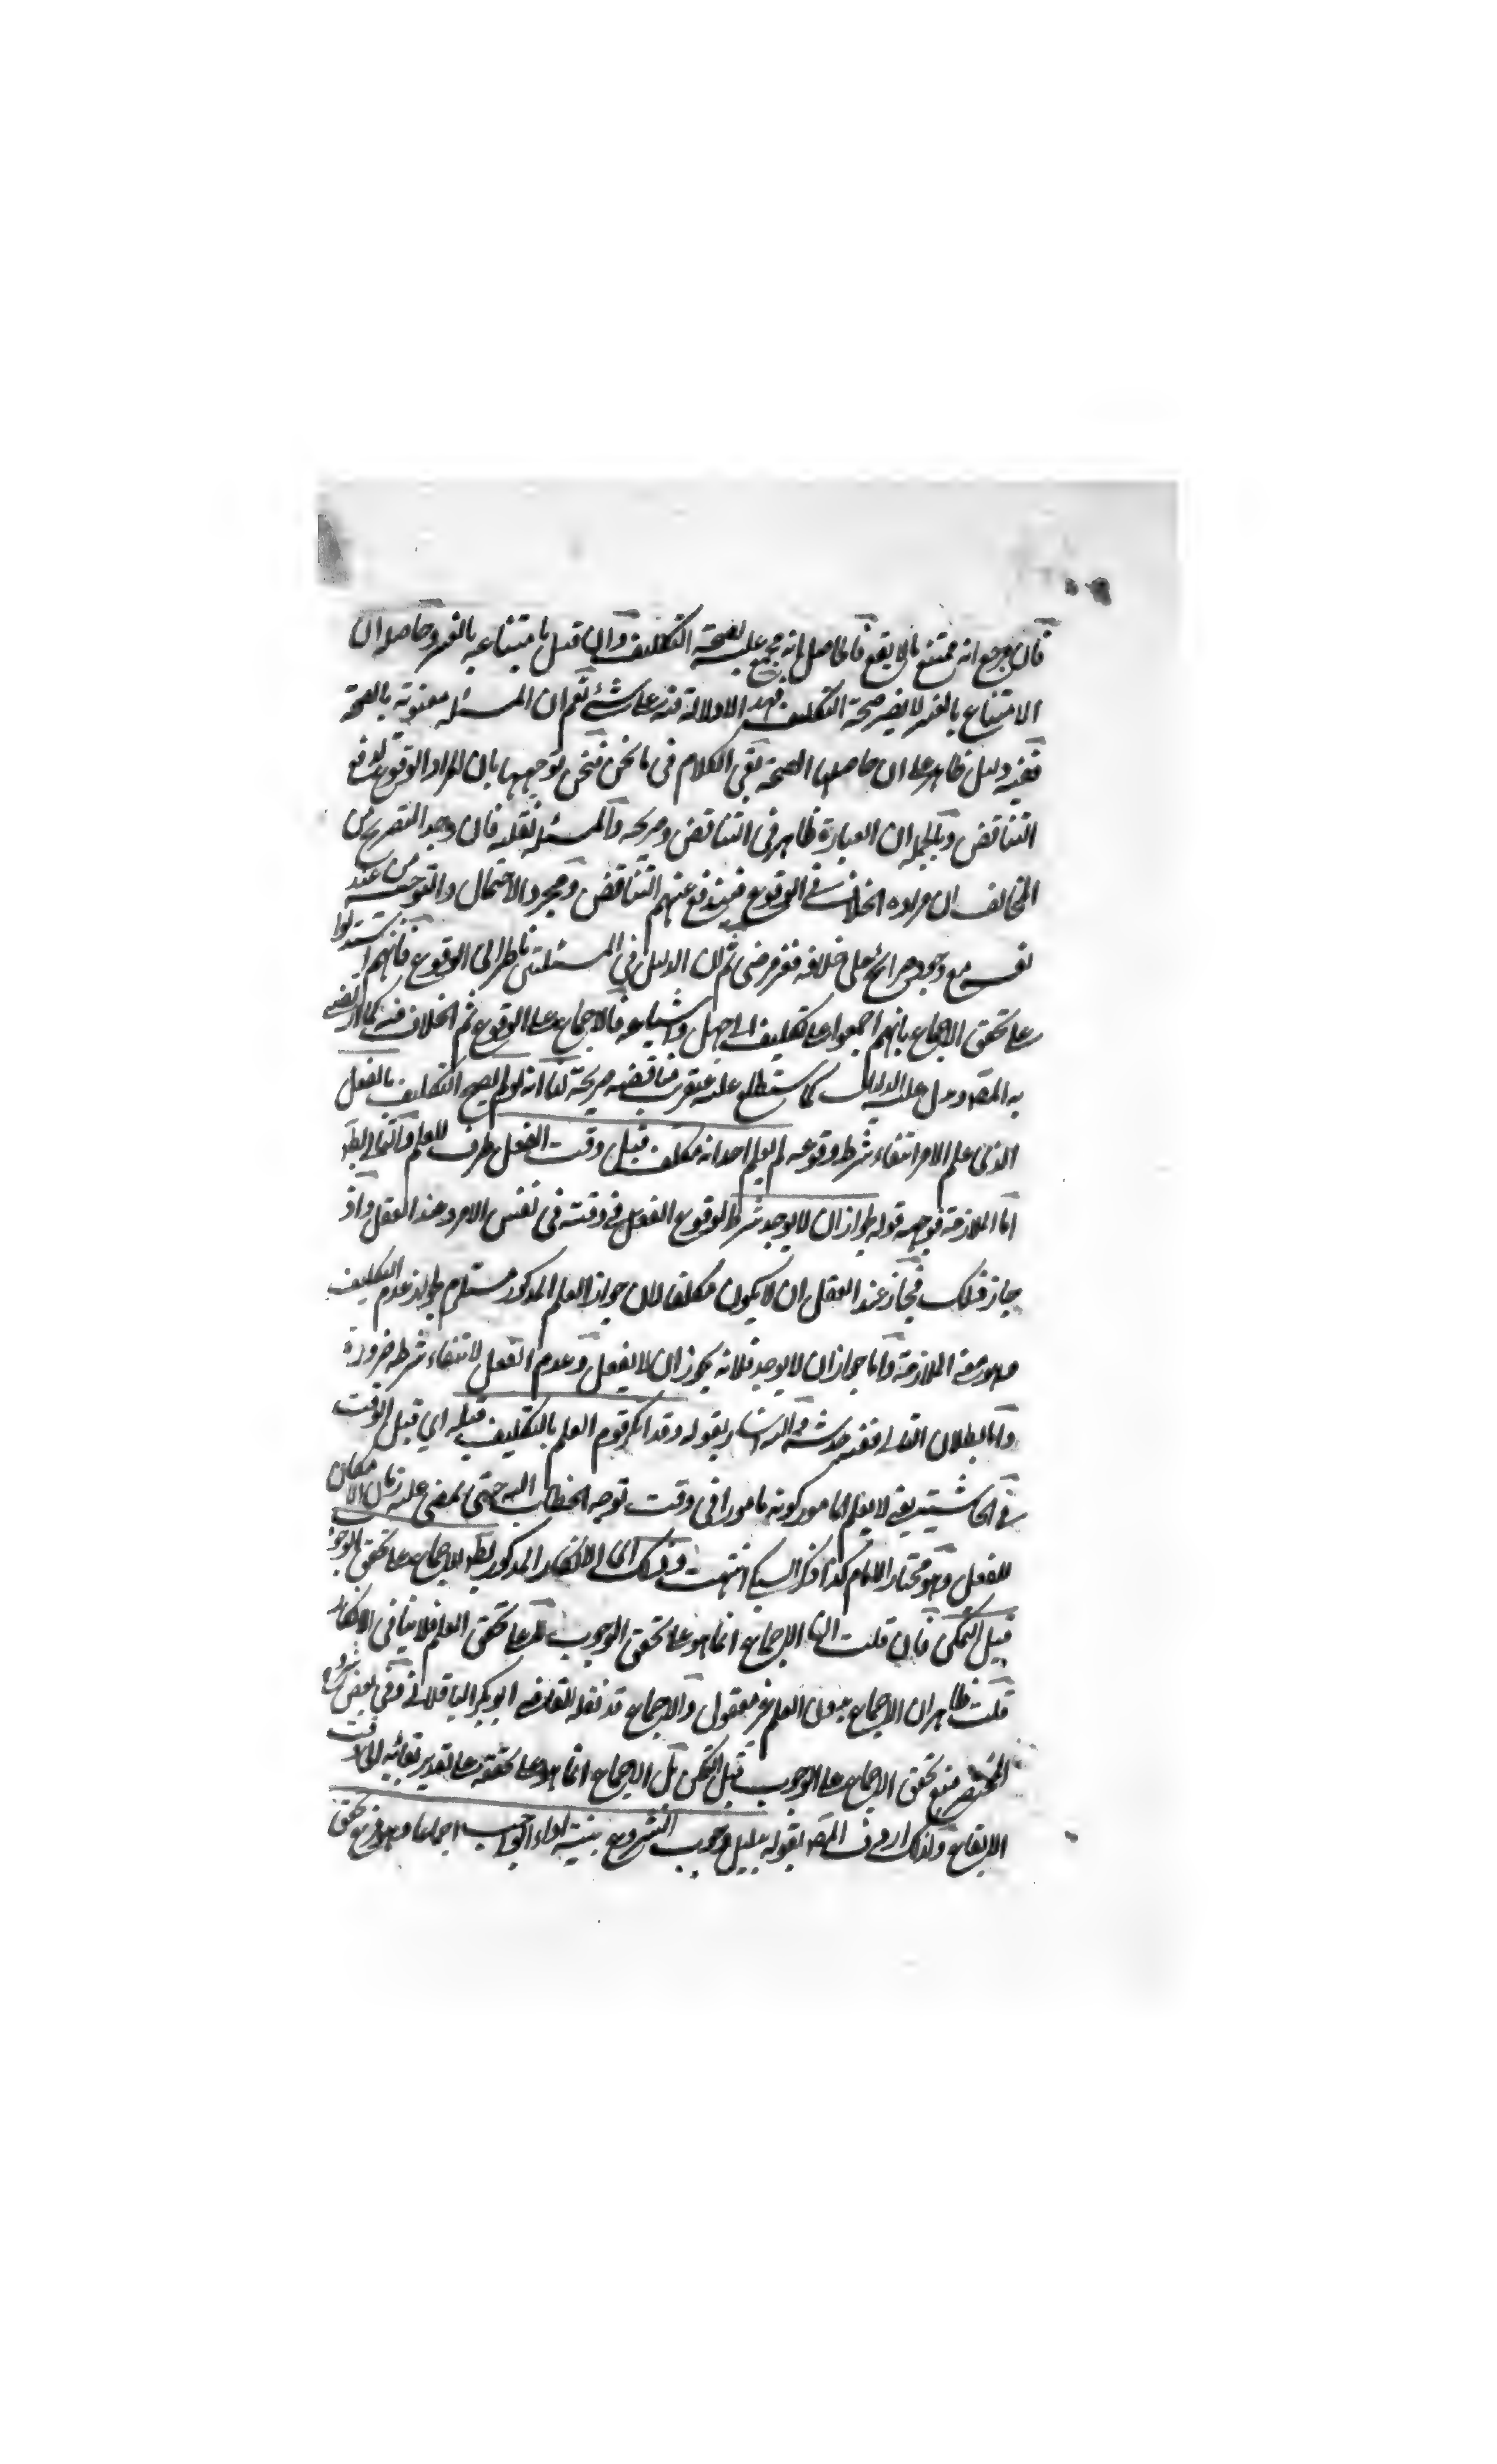 فان مرجع انه ممتنع بما لا يقع فالحاصل انه مجمع عليه لصحة التكليف وان قيل بامتناعه بالغير وحاصله ان
الامتناع بالغير لا يضر صحة التكليف فهذا لا دلالة فيه على شئ نعم ان المسئلة معنونة بالصحة
ففيه دليل ظاهر على ان حاصلها الصحة بقي الكلام في ما نحن فنحن توجيهها بان المراد الوقوع لدفع
التناقض وبالجملة ان العبارة ظاهر في التناقض وصريحه والمسئلة نقلية فان وجد التصريح من
المخالف ان مراده الخلاف في الوقوع فيندفع عنهم التناقض ومجرد الاحتمال والتوجيه من عند
نفسه مع وجود صرائح على خلافه فغير مرضي ثم ان الدليل في المسئلتين ناظر الى الوقوع فانهم استدلوا
على تحقق الاجماع بانهم اجمعوا على تكليف ابي جهل واشياعه فالاجماع على الوقوع ثم الخلاف فيه كما ارتضى
به المصـ ودل عليه الدلائل كما ستطلع عليه عنقريب مناقضة صريحة لنا انه لو لم يصح التكليف بالفعل
الذى علم الامر انتفاء شرط وقوعه لم يعلم احد انه مكلف قبل وقت الفعل ظرف للعلم والتالي بط
اما الملازمة فوجهه قوله لجواز ان لا يوجد شرط لوقوع الفعل في وقته في نفس الامر وعند العقل واذ
جاز ذلك فجاز عند العقل ان لا يكون مكلفا لان جواز العلم المذكور مستلزم لجواز عدم التكليف
وهو معنى الملازمة واما جواز ان لا يوجد فلانه يجوز ان لا يفعل وعدم الفعل لانتفاء شرطه ضرورة
واما بطلان التالي ففيه خدشة واليه اشار بقوله وقد انكر قوم العلم بالتكليف قبله اي قبل الوقت
في الحاشية يعني لا يعلم المامور كونه مامورا في وقت توجه الخطاب اليه حتى يمضى عليه زمان الامكان
للفعل وهو مختار الامام كذا ذكر السبكي انتهت وذلك اي الانكار المذكور بط للاجماع على تحقق الوجوب
قبل التمكن فان قلت ان الاجماع انما هو على تحقق الوجوب لا على تحقق العلم فلا ينافي الانكار
قلت ظاهر ان الاجماع بدون العلم غير معقول والاجماع قد نقله القاضي ابو بكر الباقلاني وفي بعض شروح
المختصر منع تحقق الاجماع على الوجوب قبل التمكن بل الاجماع انما هو على تحققه على تقدير بقائه الى وقت
الايقاع ولذلك اردف المصـ بقوله بدليل وجوب الشروع بنية اداء الواجب اجماعا وهو فرع تحقق